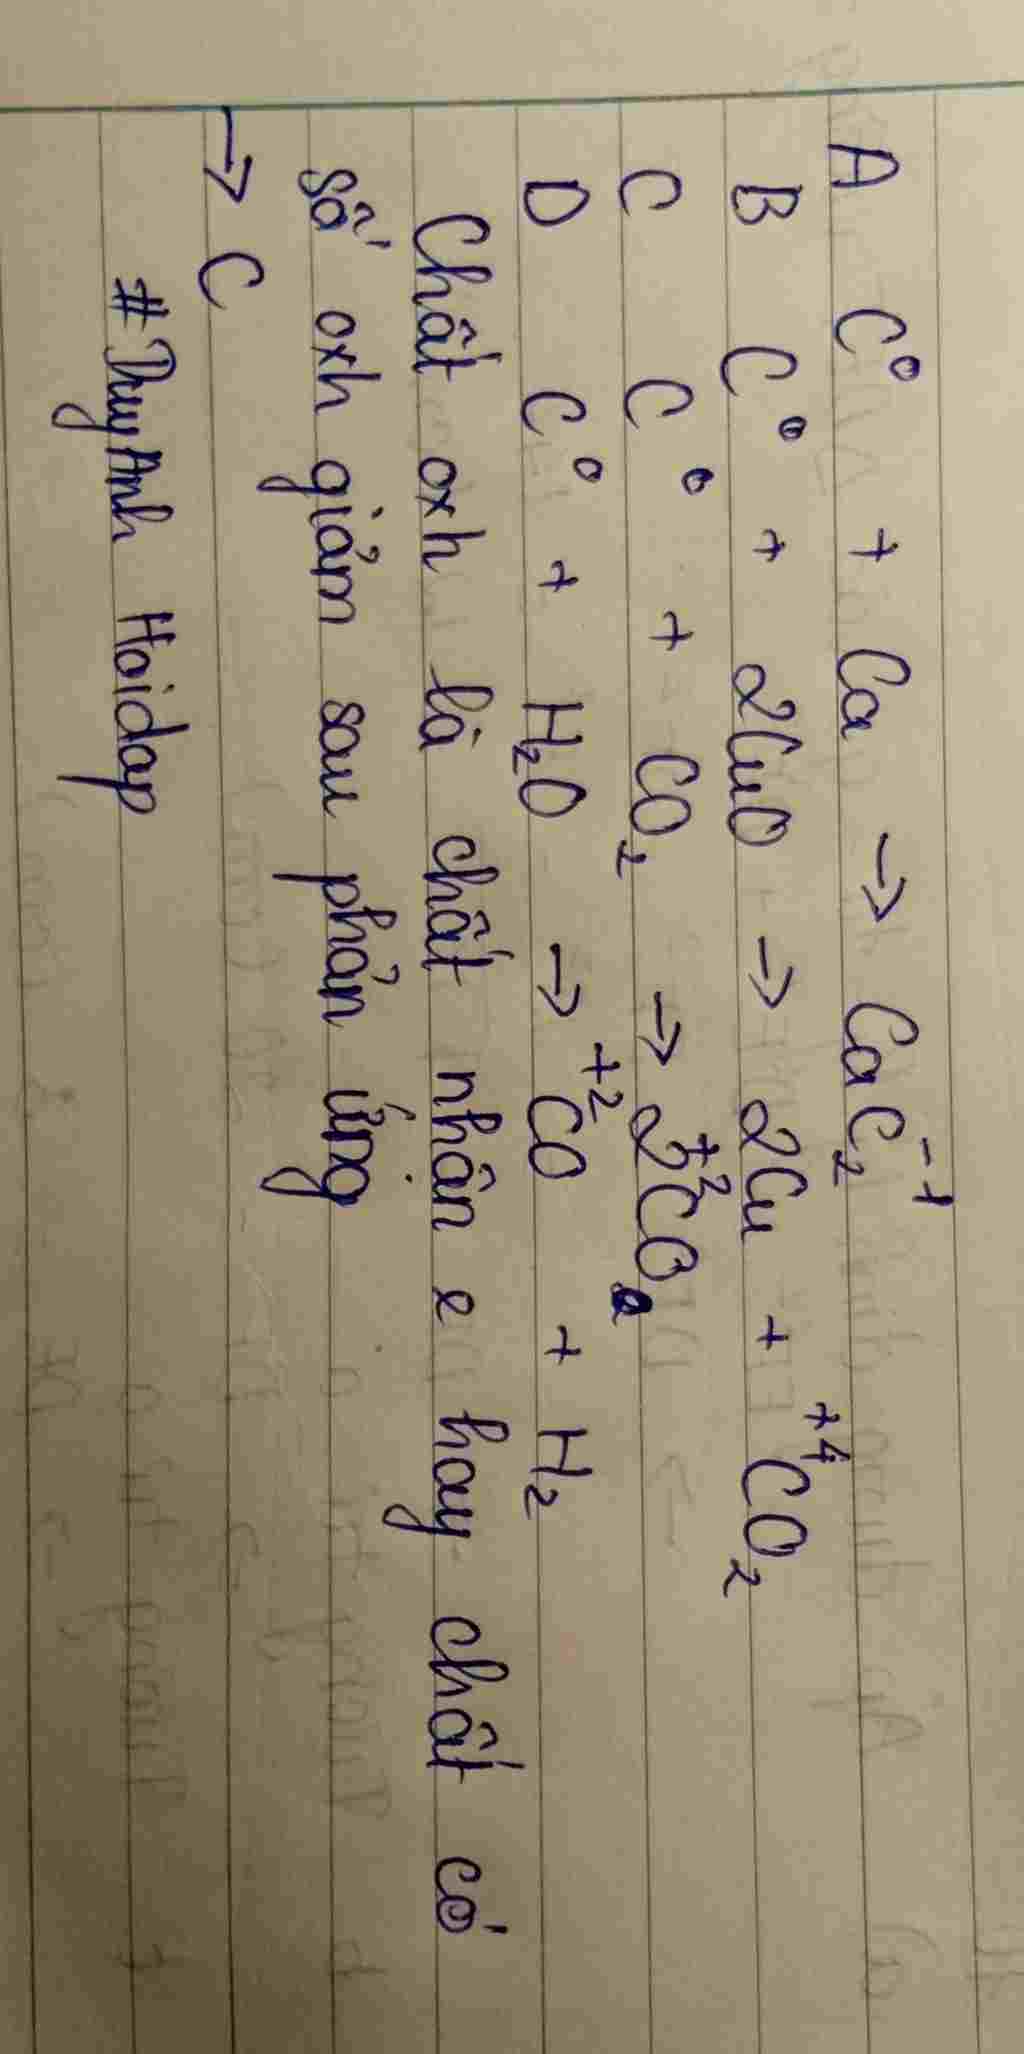 A C⁰ + Ca → CaC₂⁻¹
B C⁰ + 2CuO → 2Cu + ⁺⁴CO₂
C C⁰ + CO₂ → 2⁺²CO
D C⁰ + H₂O → ⁺²CO + H₂
Chất oxh là chất nhận e hay chất có
số oxh giảm sau phản ứng
→ C
#DuyAnh Hoidap